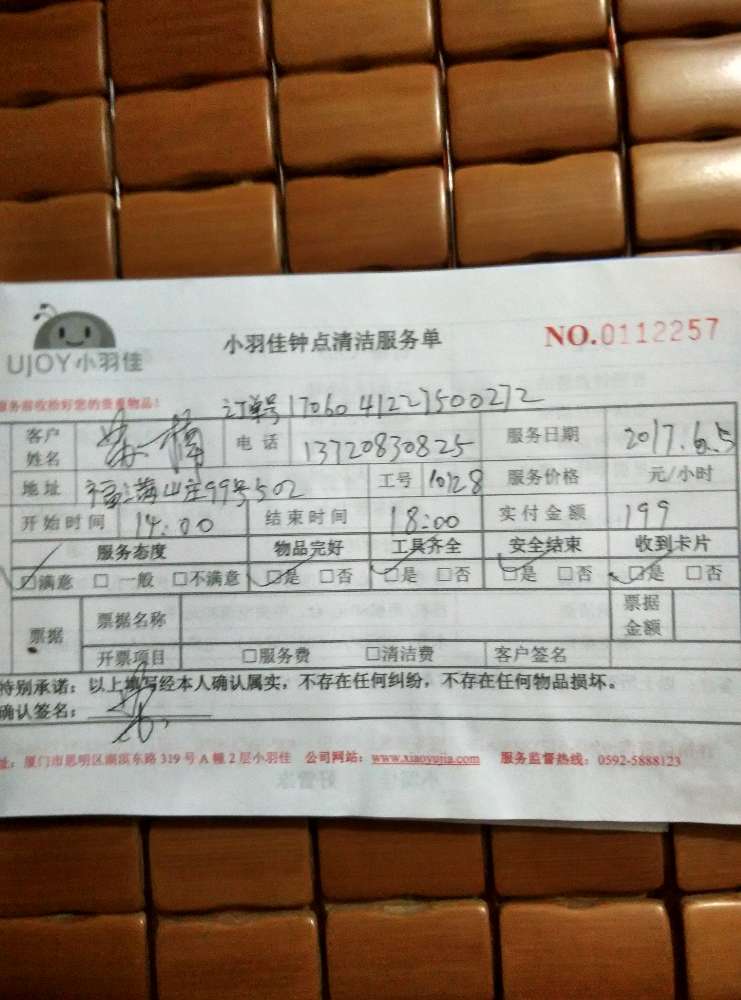 UJOY小羽佳
小羽佳钟点清洁服务单
NO.0112257
服务前收拾好您的贵重物品！
订单号1706041227500272
客户姓名 电话 13720830825 服务日期 2017.6.5
地址 福满山庄99号502 工号 10128 服务价格 元/小时
开始时间 14:00 结束时间 18:00 实付金额 199
服务态度 物品完好 工具齐全 安全结束 收到卡片
☑满意 □一般 □不满意 ☑是 □否 ☑是 □否 ☑是 □否 ☑是 □否
票据 票据名称 票据金额
开票项目 □服务费 □清洁费 客户签名
特别承诺：以上填写经本人确认属实，不存在任何纠纷，不存在任何物品损坏。
确认签名：
址：厦门市思明区湖滨东路319号A幢2层小羽佳 公司网站：www.xiaoyujia.com 服务监督热线：0592-5888123